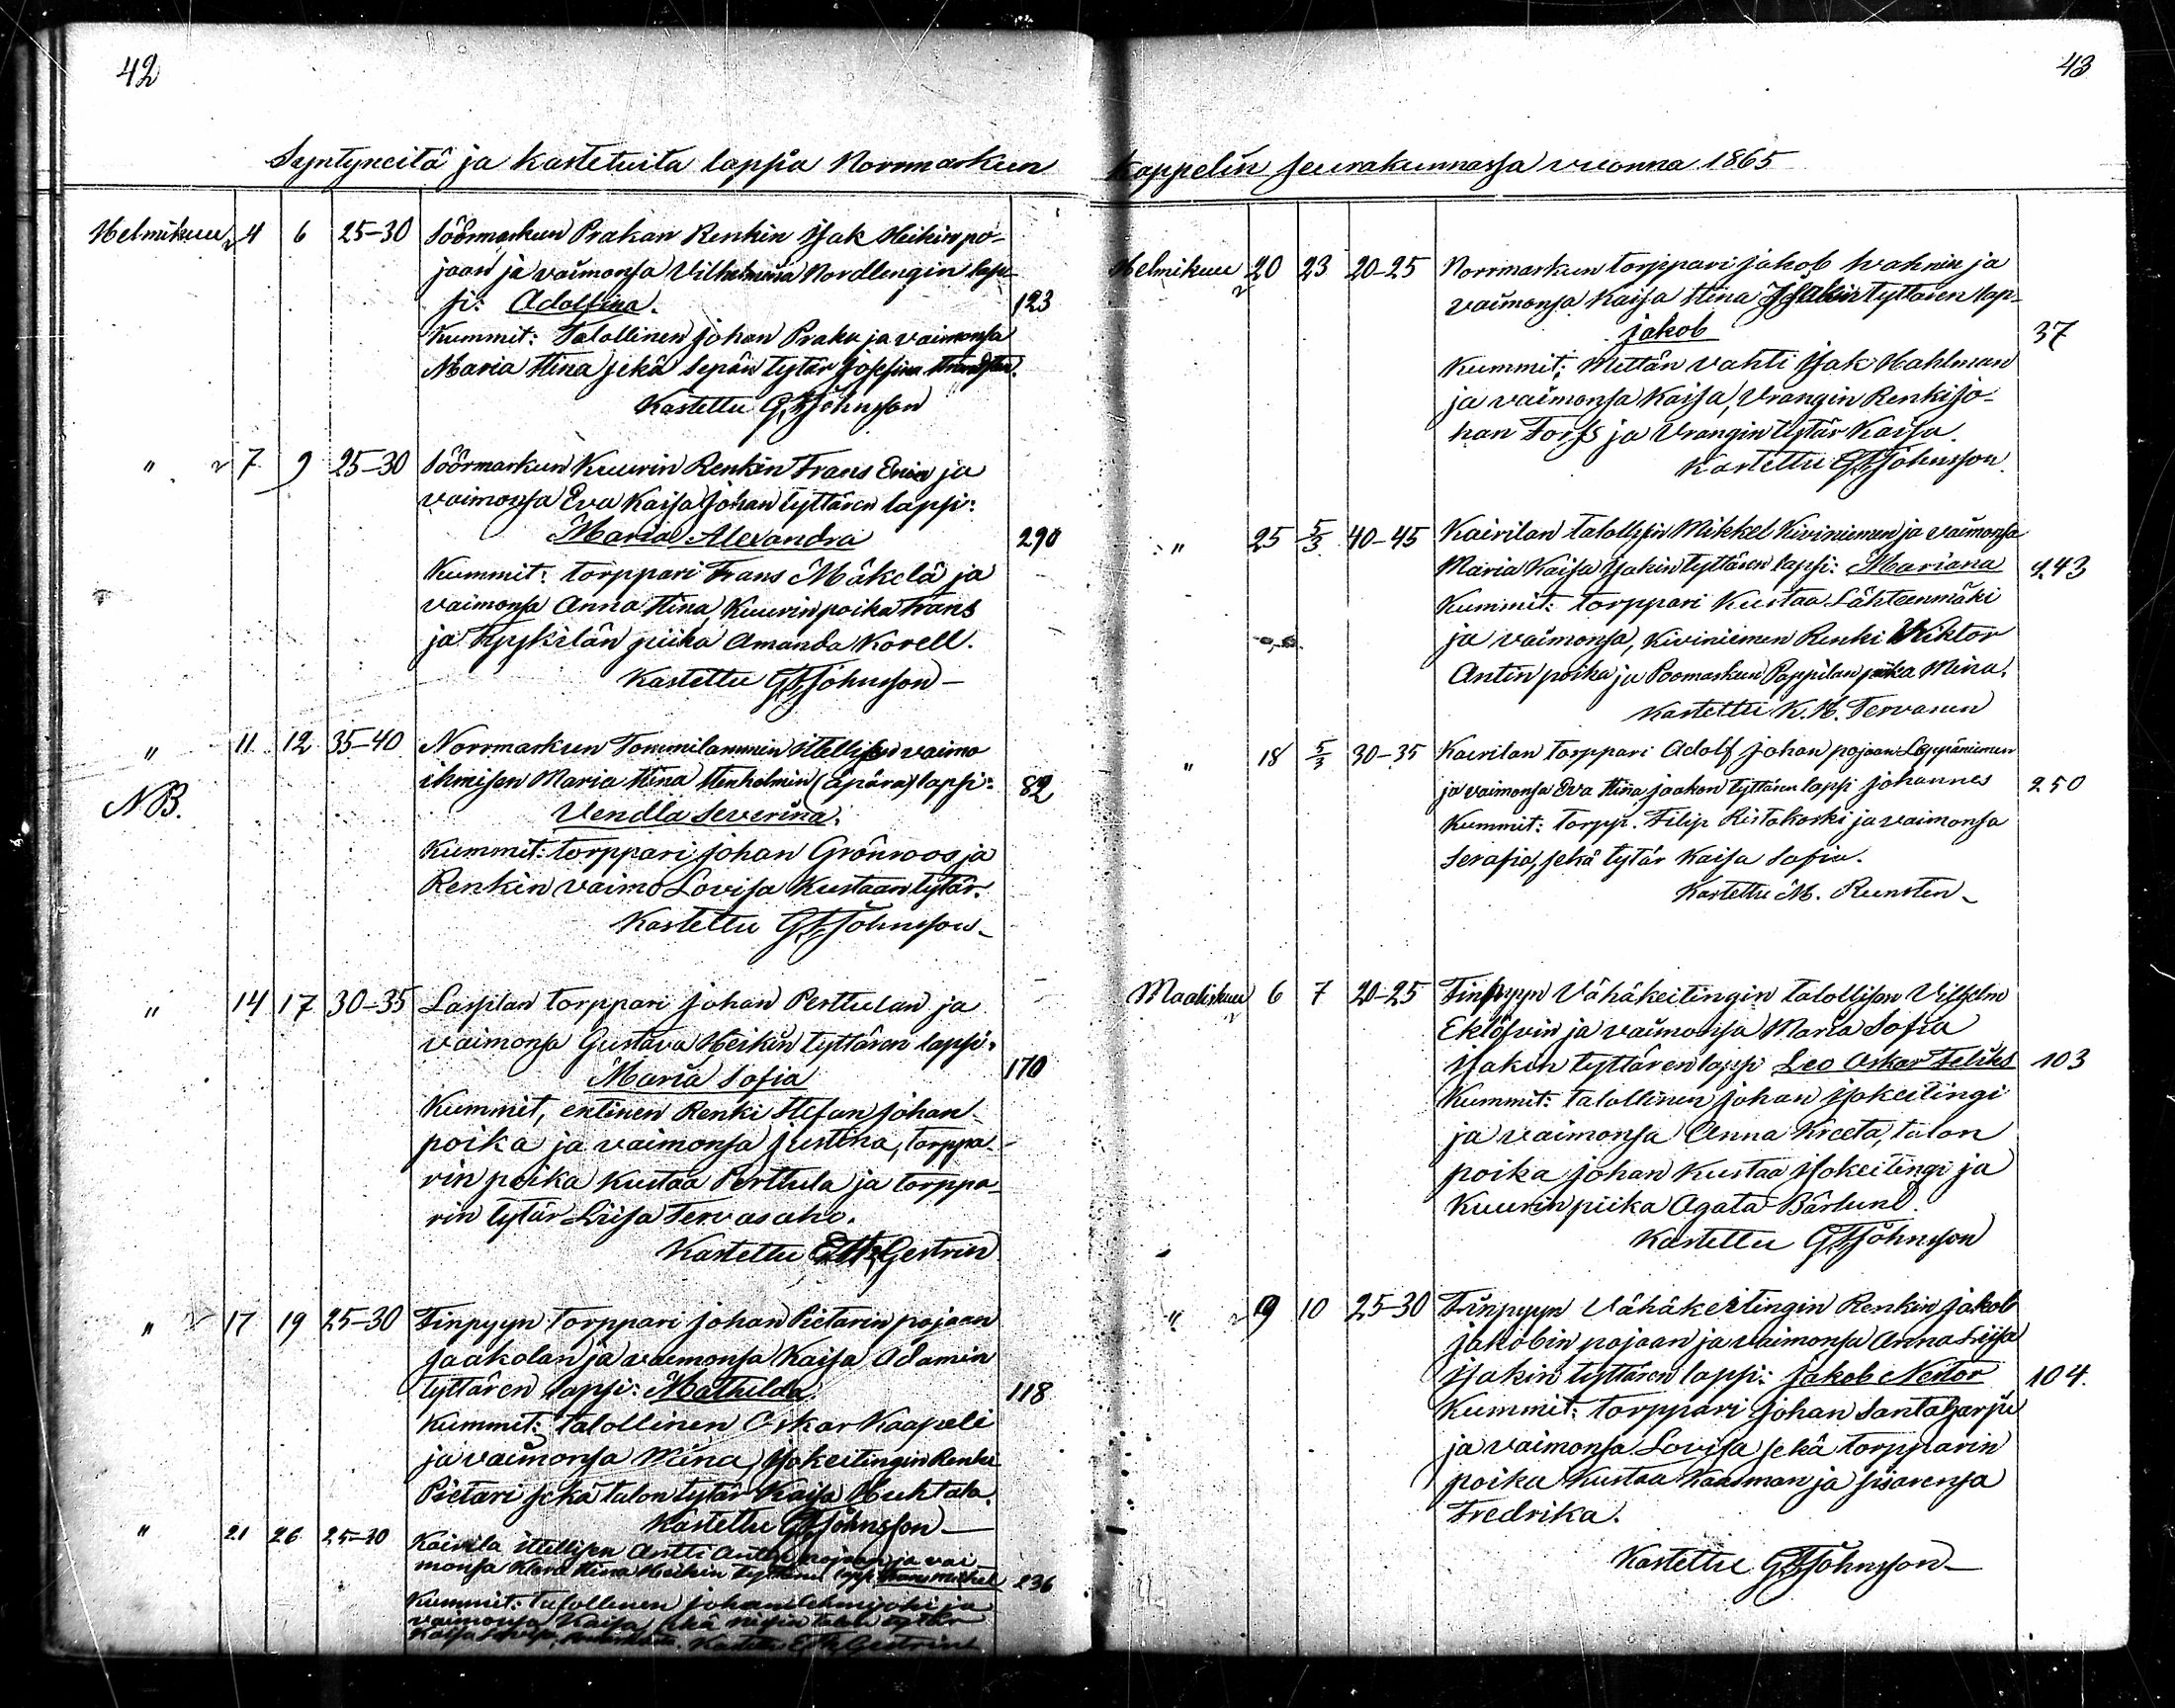 42
Syntyneitä ja kastetuita lapsia Norrmarkun
Helmikuu 4 6 25-30 Söörmarkun Prakan Renkin Isak Heikin po-
jaan ja vaimonsa Vilhelmina Nordlengin lap-
si: Adolfina. 123
Kummit: Talollinen Johan Praku ja vaimonsa
Maria Stina sekä sepän tytär Josefina
Kastettu G. F. Johnsson
" 7 9 25-30 Söörmarkun Kuurin Renkin Frans ja
vaimonsa Eva Kaisa Johan tyttären lapsi:
Maria Alexandra 290
Kummit: torppari Frans Mäkelä ja
vaimonsa Anna Stina, Kuurin poika Frans
ja piika Amanda Korell.
Kastettu G. F. Johnsson
" 11 12 35-40 Norrmarkun Tommilammin itellisen vaimo
NB.
ihmisen Maria Stina Stenholmin (Äpärä) lapsi: 82
Vendla Severina.
Kummit: torppari Johan Grönroos ja
Renkin vaimo Lovisa Kustaan tytär.
Kastettu G. F. Johnsson
" 14 17 30-35 Lasslan torppari Johan Perttulan ja
vaimonsa Gustava Heikin tyttären lapsi:
Maria Sofia 170
Kummit, entinen Renki Stefan Johan
poika ja vaimonsa Justina, torppa-
rin poika Kustaa Perttula ja torppa-
rin tytär Liisa Tervasaho.
Kastettu Gestrin
" 17 19 25-30 Finpyyn torppari Johan Pietarin pojaan
Jaakolan ja vaimonsa Kaisa Adamin
tyttären lapsi: Mathilda. 118
Kummit: talollinen Oskar Kaapeli
ja vaimonsa Miina, Isokeitingin Renki
Pietari sekä talon tytär Kaisa Huhtala.
Kastettu G. F. Johnsson
" 21 26 25-30 Kairila itellisen Antti Antin pojaan ja vai
monsa Stina Heikin tyttären lapsi Frans Mickel 236
Kummit: talollinen Johan ja
vaimonsa Kaisa sekä talo tytär
Kaisa Kastettu Gestrin
43
Kappelin seurakunnassa vuonna 1865
Helmikuu 20 23 20-25 Norrmarkun torppari Jakob Wahnin ja
vaimonsa Kaisa Stina Isakin tyttären lap-
Jakob 37
Kummit: Mettän vahti Isak Hahlman
ja vaimonsa Kaisa, Vrangin Renki Jo-
han Forss ja Vrangin tytär Kaisa.
Kastettu G. F. Johnsson.
" 25 5/3 40-45 Kairilan talollisen Mikkel Kiviniemen ja vaimonsa
Maria Kaisa Isakin tyttären lapsi: Mariana 243
Kummit: torppari Kustaa Lähteenmäki
ja vaimonsa, Kiviniemen Renki Wiktor
Antin poika ja Poomarkun Pappilan piika Miina.
Kastettu K. H. Tervanen
" 18 5/3 30-35 Kairilan torppari Adolf Johan pojaan Leppäniemen
ja vaimonsa Eva Stina Jaakon tyttären lapsi Johannes 250
Kummit: torpp. Filip Ristakoski ja vaimonsa
Serafia, sekä tytär Kaisa Sofia.
Kastettu M. Runsten
Maaliskuu 6 7 20-25 Finpyyn Vähäkeitingin talollisen Vilhelm
Eklöfvin ja vaimonsa Maria Sofia
Isakin tyttären lapsi Leo Oskar Feliks 103
Kummit: talollinen Johan Isokeitingi
ja vaimonsa Anna Kreeta, talon
poika Johan Kustaa Isokeitingi ja
Kuurin piika Agata Bärlund.
Kastettu G. F. Johnsson
" 9 10 25-30 Finpyyn Vähäkeitingin Renkin Jakob
Jakobin pojaan ja vaimonsa Anna Liisa
Isakin tyttären lapsi: Jakob Nestor 104.
Kummit: torppari Johan Santaharju
ja vaimonsa Lovisa sekä torpparin
poika Kustaa Kaasman ja sisarensa
Fredrika.
Kastettu G. F. Johnsson